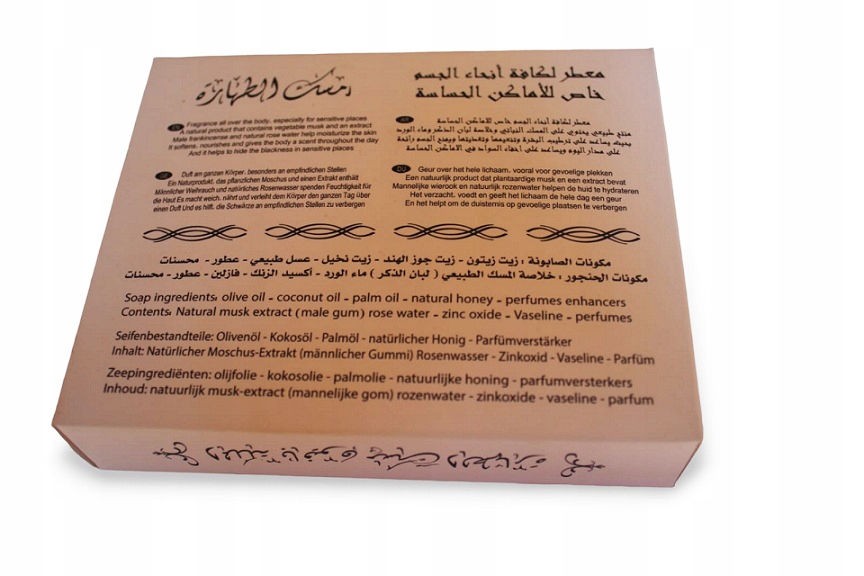 مسك الطهارة
معطر لكافة أنحاء الجسم
خاص للأماكن الحساسة
EN Fragrance all over the body, especially for sensitive places
A natural product that contains vegetable musk and an extract
Male frankincense and natural rose water help moisturize the skin
It softens, nourishes and gives the body a scent throughout the day
And it helps to hide the blackness in sensitive places
معطر لكافة أنحاء الجسم خاص للاماكن الحساسة
منتج طبيعي يحتوي على المسك النباتي وخلاصة لبان الذكر وماء الورد
بحيث يساعد على ترطيب البشرة وتنعيمها وتغذيتها ويمنح الجسم رائحة
على مدار اليوم ويساعد على أخفاء السواد في الاماكن الحساسة
Duft am ganzen Körper, besonders an empfindlichen Stellen
Ein Naturprodukt, das pflanzlichen Moschus und einen Extrakt enthält
Männlicher Weihrauch und natürliches Rosenwasser spenden Feuchtigkeit für
die Haut Es macht weich, nährt und verleiht dem Körper den ganzen Tag über
einen Duft Und es hilft, die Schwärze an empfindlichen Stellen zu verbergen
DU Geur over het hele lichaam, vooral voor gevoelige plekken
Een natuurlijk product dat plantaardige musk en een extract bevat
Mannelijke wierook en natuurlijk rozenwater helpen de huid te hydrateren
Het verzacht, voedt en geeft het lichaam de hele dag een geur
En het helpt om de duisternis op gevoelige plaatsen te verbergen
مكونات الصابونة : زيت زيتون - زيت جوز الهند - زيت نخيل - عسل طبيعي - عطور - محسنات
مكونات الحنجور : خلاصة المسك الطبيعي ( لبان الذكر ) ماء الورد - أكسيد الزنك - فازلين - عطور - محسنات
Soap ingredients: olive oil - coconut oil - palm oil - natural honey - perfumes enhancers
Contents: Natural musk extract (male gum) rose water - zinc oxide - Vaseline - perfumes
Seifenbestandteile: Olivenöl - Kokosöl - Palmöl - natürlicher Honig - Parfümverstärker
Inhalt: Natürlicher Moschus-Extrakt (männlicher Gummi) Rosenwasser - Zinkoxid - Vaseline - Parfüm
Zeepingrediënten: olijfolie - kokosolie - palmolie - natuurlijke honing - parfumversterkers
Inhoud: natuurlijk musk-extract (mannelijke gom) rozenwater - zinkoxide - vaseline - parfum